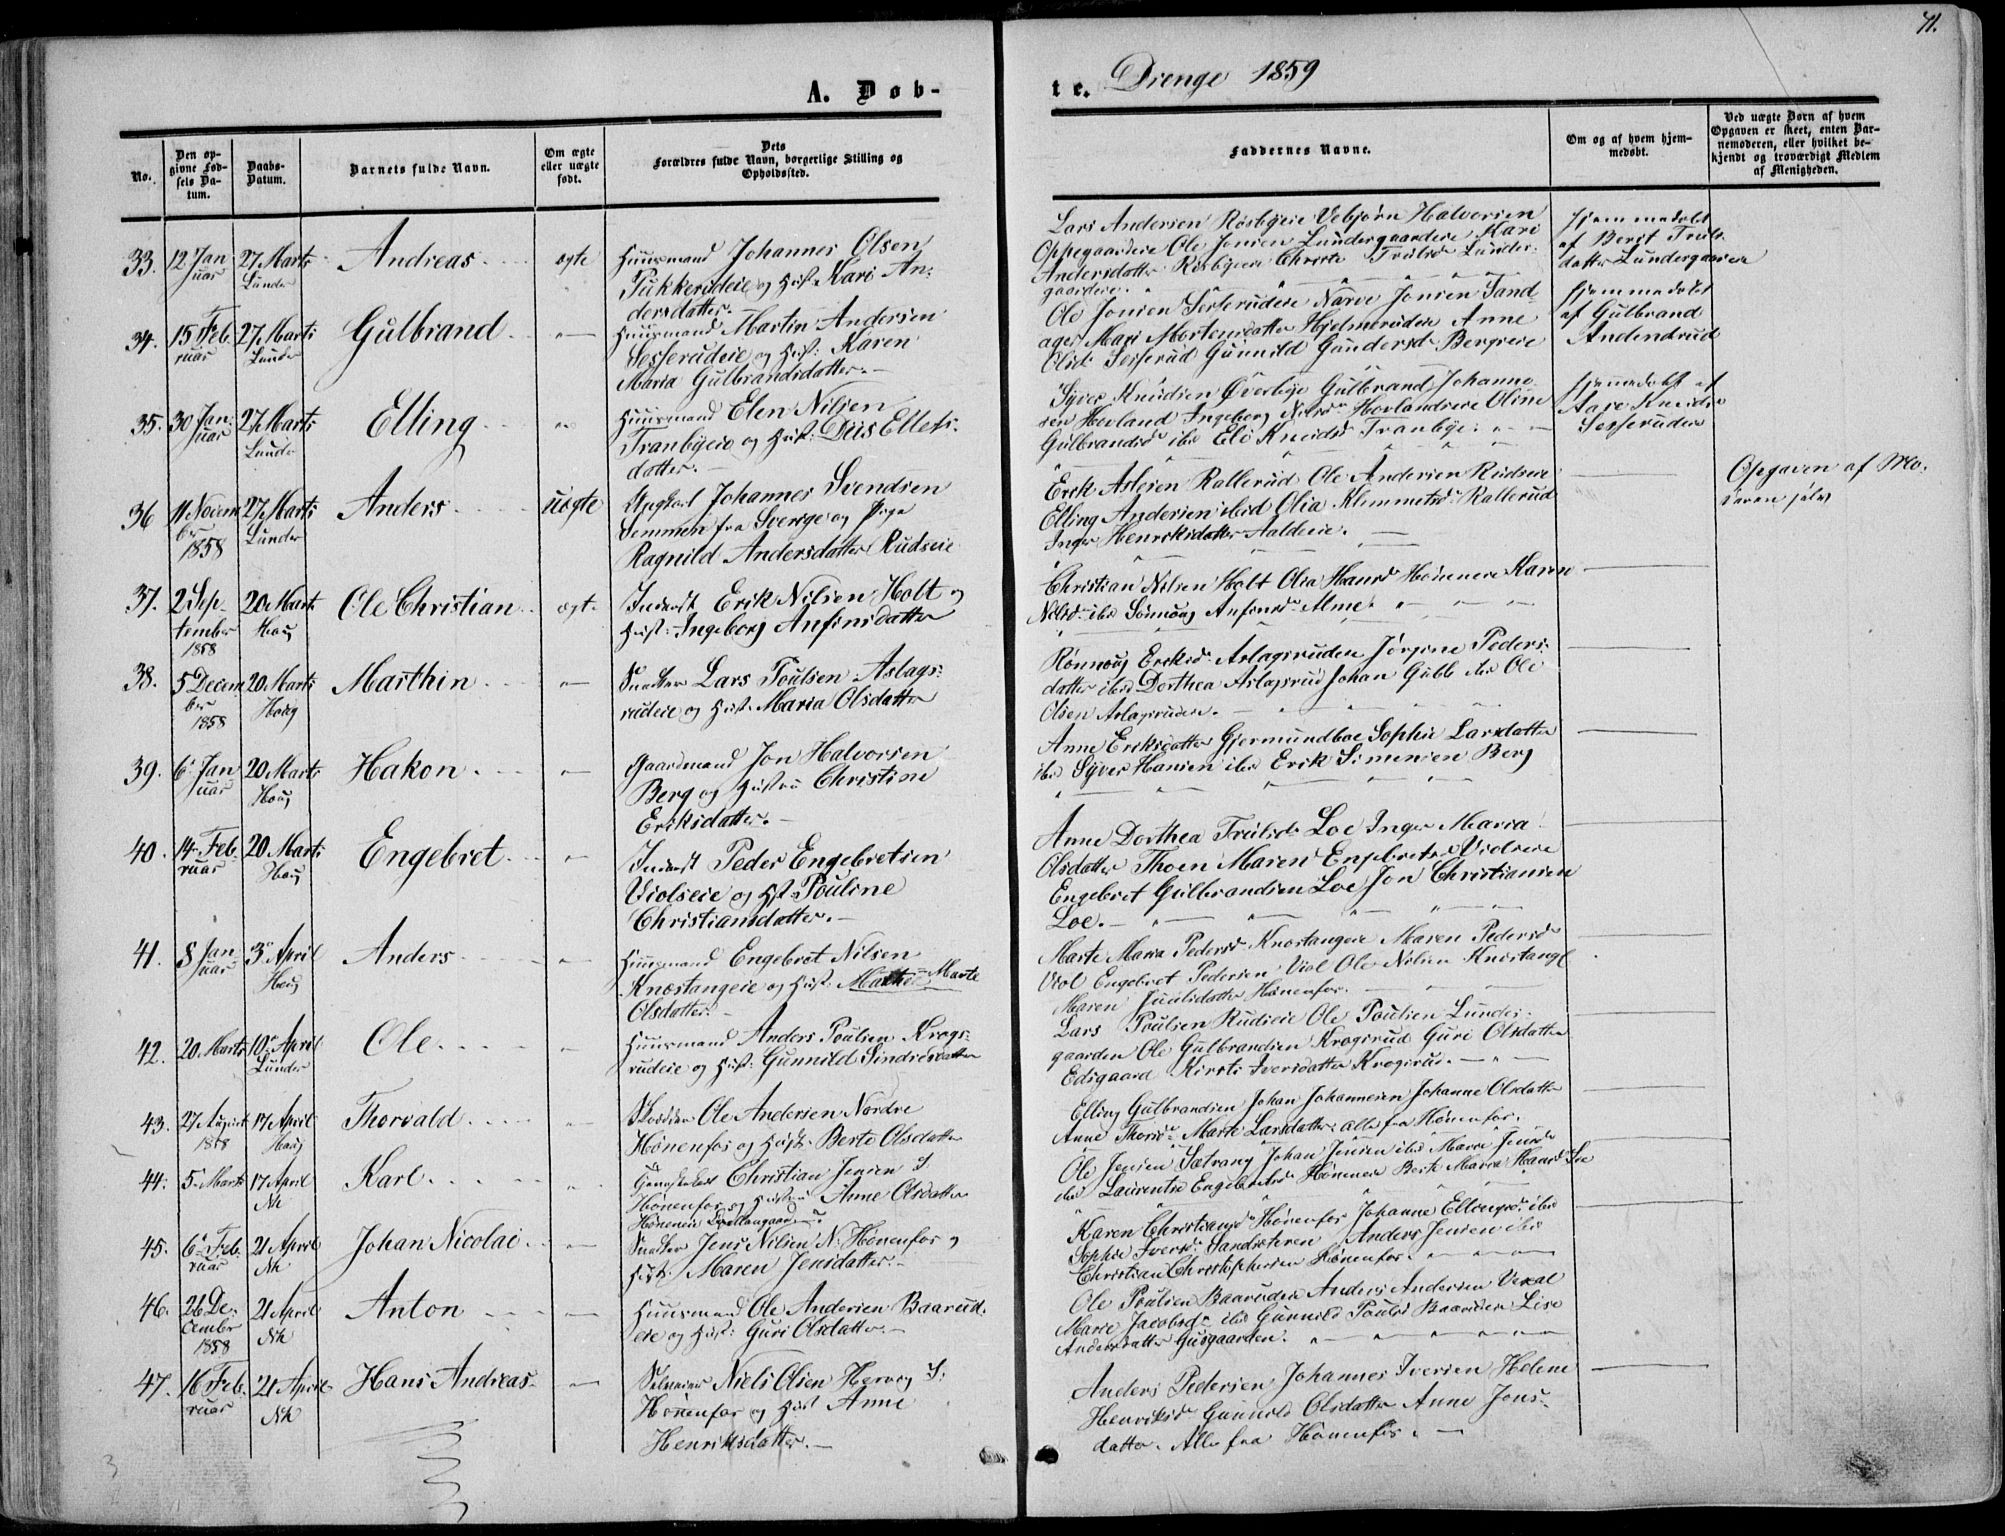 71.
A. Døb-
te. Drenge 1859
No.
Den op-
givne Fød-
sels Da-
tum.
Daabs-
Datum.
Barnets fulde Navn.
Om ægte
eller uægte
født.
Dets
Forældres fulde Navn, borgerlige Stilling og
Opholdssted.
Faddernes Navne.
Om og af hvem hjem-
medøbt.
Ved uægte Børn af hvem
Opgaven er skeet, enten Bar-
nemoderen, eller hvilket be-
kjendt og troværdigt Medlem
af Menigheden.
33. 12 Jan
uar
27 Marts
Lunder
Andreas
ægte
Huusmand Johannes Olsen
Pukkerudeie og Hust. Kari An-
dersdatter.
Lars Andersen Røsbyeie Vebjørn Halvorsen
Oppegaardeie Ole Jonsen Lundergaardeie Mari
Andersdatter Røsbyeie Christi Trulsd Lunder-
gaardeie.
Hjemmedøbt
af Berit Truls
datter Lundergaardeie
34. 15 Feb
ruar
27 Marts
Lunder
Gulbrand
Huusmand Martin Andersen
Sesserudeie og Hust: Karen
Maria Gulbrandsdatter.
Ole Jonsen Sesserudeie Narve Jonsen Sand-
ager Mari Mortensdatter Hjelmerudeie Anne
Olsd. Sesserud Gunnild Gundersd Bergeeie
Hjemmedøbt
af Gulbrand
Andendrud
35. 30 Jan-
uar
27 Marts
Lunder
Elling
Huusmand Elen Nilsen
Tranbyeie og Hust: Siis Ellefs-
datter.
Syver Knudsen Øverbye Gulbrand Johanne-
sen Hovland Ingeborg Nilsd Hovlandseie Oline
Gulbrandsd ibd Eli Knudsd Tranbye
Hjemmedøbt af
Aase Knudsd
Sesserudeie
36 11 Novem
ber
1858
27 Marts
Lunder
Anders
uægte
Ungkarl Johannes Svendsen
Semmen fra Sverige og Pige
Ragnild Andersdatter Rudseie
Erik Aslesen Rallerud Ole Andersen Rudseie
Elling Andersen ibid Olia Klemmetsd Rallerud
Inger Henriksdatter Aaldeie.
Opgaven af Mo-
deren selv
37. 2 Sep-
tember
1858
20 Marts
Houg
Ole Christian
ægt.
Inderst Erik Nilsen Holt og
Hust: Ingeborg Anfinsdatter
Christian Nilsen Holt Olia Hansd Hønneneie Karen
Nilsd ibd Sønnoug Anfinsd Alme
38. 5 Decem
ber
1858
20 Marts
Houg
Marthin
Snedker Lars Poulsen Aslags-
rudeie og Hust. Maria Olsdatter
Rønnoug Eriksd Aslagsrudeie Jørgine Peders-
datter ibd Dorthea Aslagsrud Johan Gubb ibd Ole
Olsen Aslagsrudeie.
39. 6 Jan
uar
20 Marts
Houg
Hakon
Gaardmand Jon Halvorsen
Berg og Hustru Christine
Eriksdatter.
Anne Eriksdatter Gjermundboe Sophie Larsdatter
ibd Syver Hansen ibd Erik Simensen Berg
40. 14 Feb
ruar
20 Marts
Houg
Engebret
Inderst Peder Engebretsen
Violseie og Hst Pouline
Christiansdatter.
Anne Dorthea Trulsd Loe Inger Maria
Olsdatter Thoen Maren Engebretsd Violseie
Engebret Gulbrandsen Loe Jon Christiansen
Loe.
41. 8 Jan
uar
3 April
Houg
Anders
Huusmand Engebret Nilsen
Knæstangeie og Hust: Mathe Marte
Olsdatter.
Marte Maria Pedersd Knæstangeie Maren Pedersd
Viol Engebret Pedersen Viol Ole Nilsen Knæstangl
Maren Juulsdatter Hønenfos.
42. 20 Marts
10 April
Lunder
Ole
Huusmand Anders Poulsen Krogs-
rudeie og Hust: Gunnild Sindresdatter
Lars Poulsen Rudseie Ole Poulsen Lunder-
gaarden Ole Gulbrandsen Krogsrud Guri Olsdatter
Edsgaard Kirsti Iversdatter Krogsrud.
43. 27 August
1858
17 April
Houg
Thorvald
Skredder Ole Andersen Nordre
Hønenfos og Hust. Berte Olsdatter
Elling Gulbrandsen Johan Johannesen Johanne Olsdatter
Anne Thorsd Marte Larsdatter alle fra Hønenfos.
44. 5 Marts
17 April
Nh
Karl
Christian Jensen S.
Hønenfos og Hustru Anne Olsdatter
Hønenfos
Ole Jensen Sætrang Johan Jensen ibd Maren Jensd
ibd Laurentse Engebretsd Høneneie Berte Maria Hansd
45. 6 Feb
ruar
21 April
Nh
Johan Nicolai
Snedker Jens Nilsen N. Hønenfos og
Hust. Maren Jensdatter.
Karen Christiansd Hønenfos Johanne Ellingsd ibd
Sophie Iversd Sandsæteren Anders Jensen ibd
Christian Christophersen Hønenfos.
46. 26 De-
cember
1858
21 April
Nh
Anton
Huusmand Ole Andersen Baarud-
eie og Hust: Guri Olsdatter.
Ole Poulsen Baarudeie Anders Andersen Vexal
Marie Jacobsd ibd Gunnild Poulsd Baarudeie Lise
Andersdatter Gusgaarden.
47. 16 Feb
ruar
21 April
Nh
Hans Andreas
Niels Olsen Hervog S.
Hønenfos og Hust Anne
Henriksdatter.
Anders Pedersen Johannes Iversen Helene
Henriksd Gunnild Olsdatter Anne Jons-
datter. Alle fra Hønenfos.